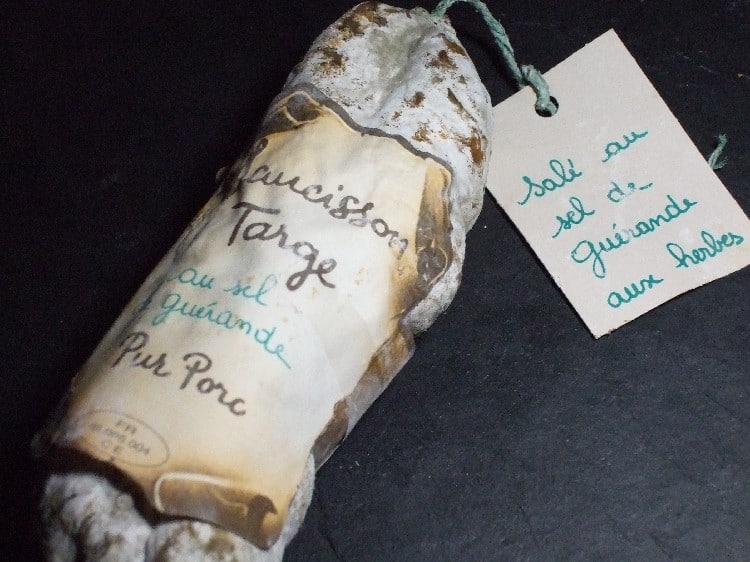 Saucisson
Targe
au sel
guérande
Pur Porc
FR
CE
salé au
sel de
guérande
aux herbes